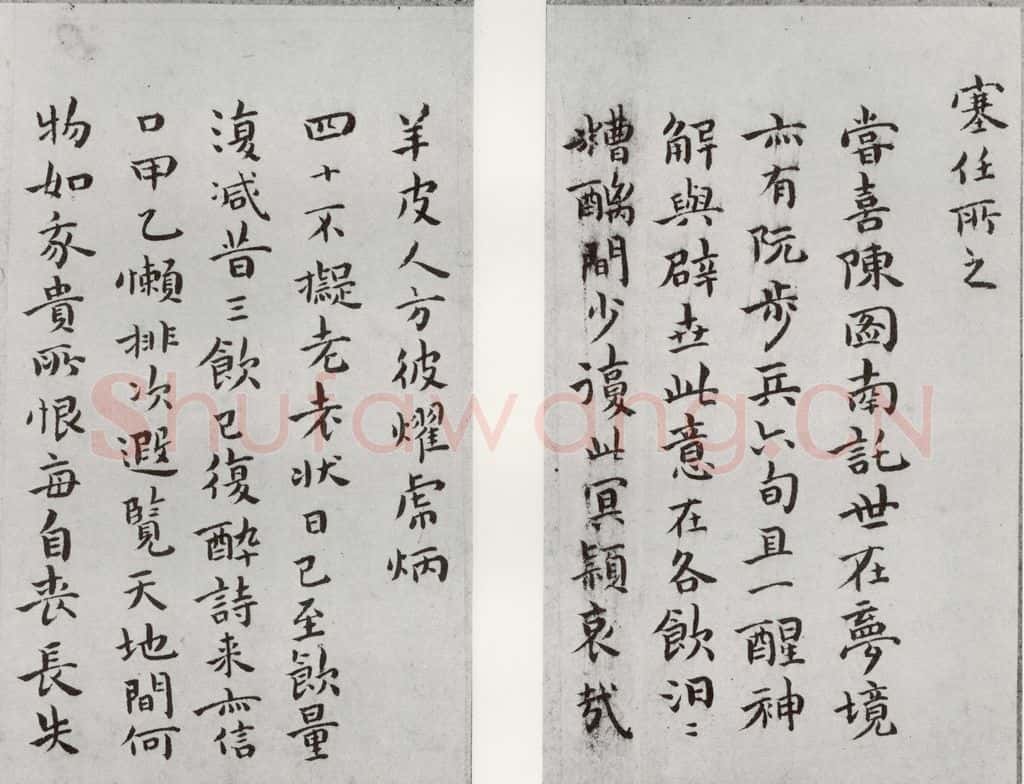 塞任所之
嘗喜陳圖南託世在夢境
亦有阮步兵六旬且一醒神
解與辟世此意在各飲汨〻
糟醨間少此冥穎哀哉
羊皮人方彼耀虎炳
四十不擬老老狀日已至飲量
復減昔三飲已復醉詩来亦信
口甲乙懶排次遐覽天地間何
物如我貴所恨每自喪長失
Shufawang.CN